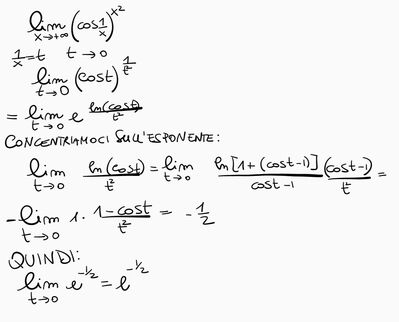 lim x→+∞ (cos 1/x)^x²
1/x = t t→0
lim t→0 (cost)^1/t²
= lim t→0 e^ln(cost)/t²
CONCENTRIAMOCI SULL'ESPONENTE:
lim t→0 ln(cost)/t² = lim t→0 ln[1+(cost-1)]/cost-1 (cost-1)/t² =
-lim t→0 1· 1-cost/t² = -1/2
QUINDI:
lim t→0 e^-1/2 = e^-1/2